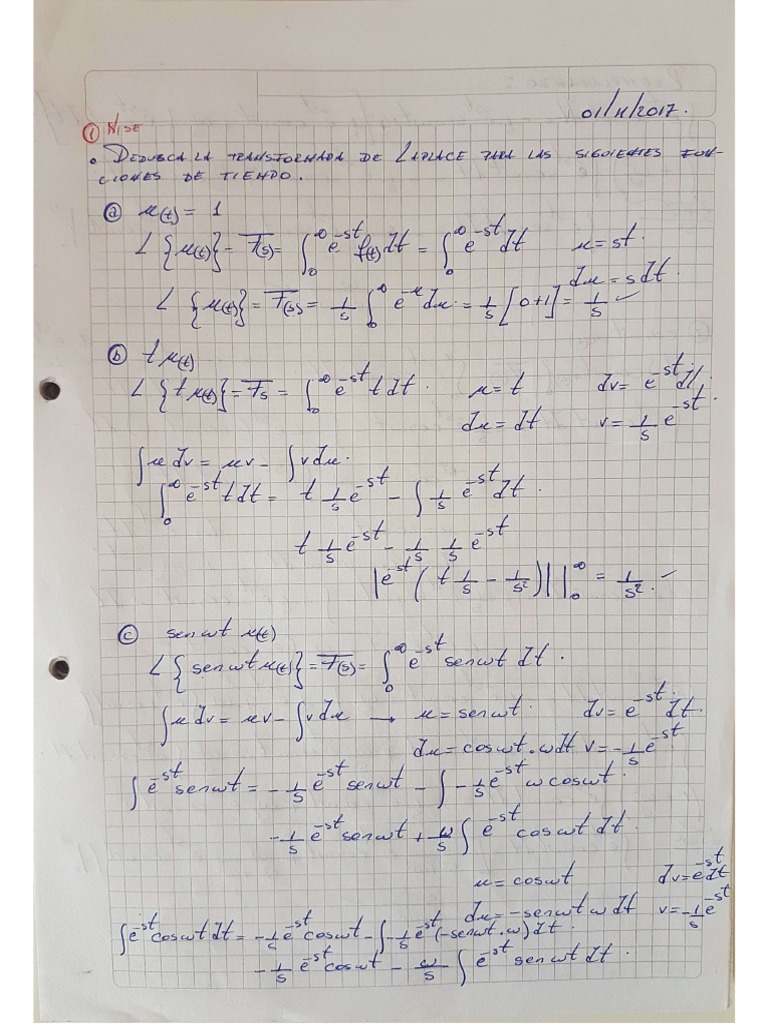 01/11/2017.
① NISE
• DEDUSCA LA TRANSFORMADA DE LAPLACE PARA LAS SIGUIENTES FUN-
CIONES DE TIEMPO.
ⓐ u(t) = 1
L{u(t)} = F(s) = ∫₀^∞ e^-st f(t) dt = ∫₀^∞ e^-st dt u = st.
du = s dt.
L{u(t)} = F(s) = 1/s ∫₀^∞ e^-u du = 1/s [0+1] = 1/s ✓
ⓑ t u(t)
L{t u(t)} = Fs = ∫₀^∞ e^-st t dt. u = t dv = e^-st dt,
du = dt v = 1/s e^-st.
∫u dv = uv - ∫v du.
∫₀^∞ e^-st t dt = t 1/s e^-st - ∫ 1/s e^-st dt.
t 1/s e^-st - 1/s 1/s e^-st
|e^-st ( t 1/s - 1/s² )| |₀^∞ = 1/s². ✓
ⓒ senwt u(t)
L{senwt u(t)} = F(s) = ∫₀^∞ e^-st senwt dt.
∫u dv = uv - ∫v du → u = senwt. dv = e^-st dt.
du = coswt.wdt v = -1/s e^-st
∫e^-st senwt = -1/s e^-st senwt - ∫ -1/s e^-st w coswt.
-1/s e^-st senwt + w/s ∫ e^-st coswt dt.
u = coswt dv = e^-st dt
du = -senwt w dt v = -1/s e^-st
∫e^-st coswt dt = -1/s e^-st coswt - ∫-1/s e^-st (-senwt.w) dt.
-1/s e^-st coswt - w/s ∫ e^-st senwt dt.